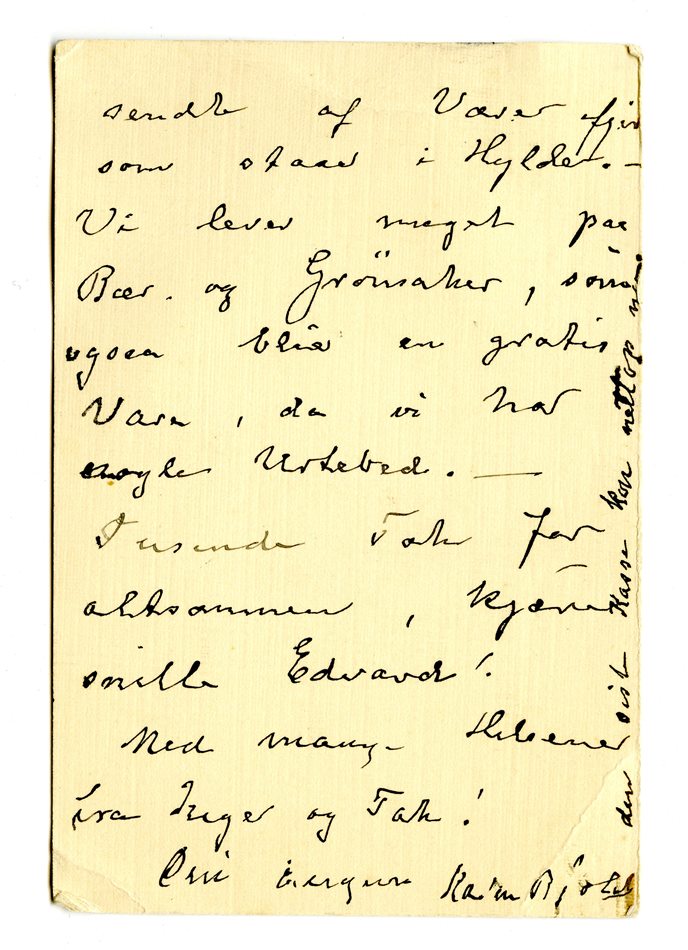 sendt af Varer
som staar i Hylder. —
Vi lever meget paa
Bær. og Grönsaker, som
ogsaa blir en gratis
Vare, da vi har
nogle Urtebed. —
Tusende Tak for
altsammen, kjære
snille Edvard!
Med mange Hilsener
fra Inger og Tak!
Din Karen
den sist Kasse kom nettop